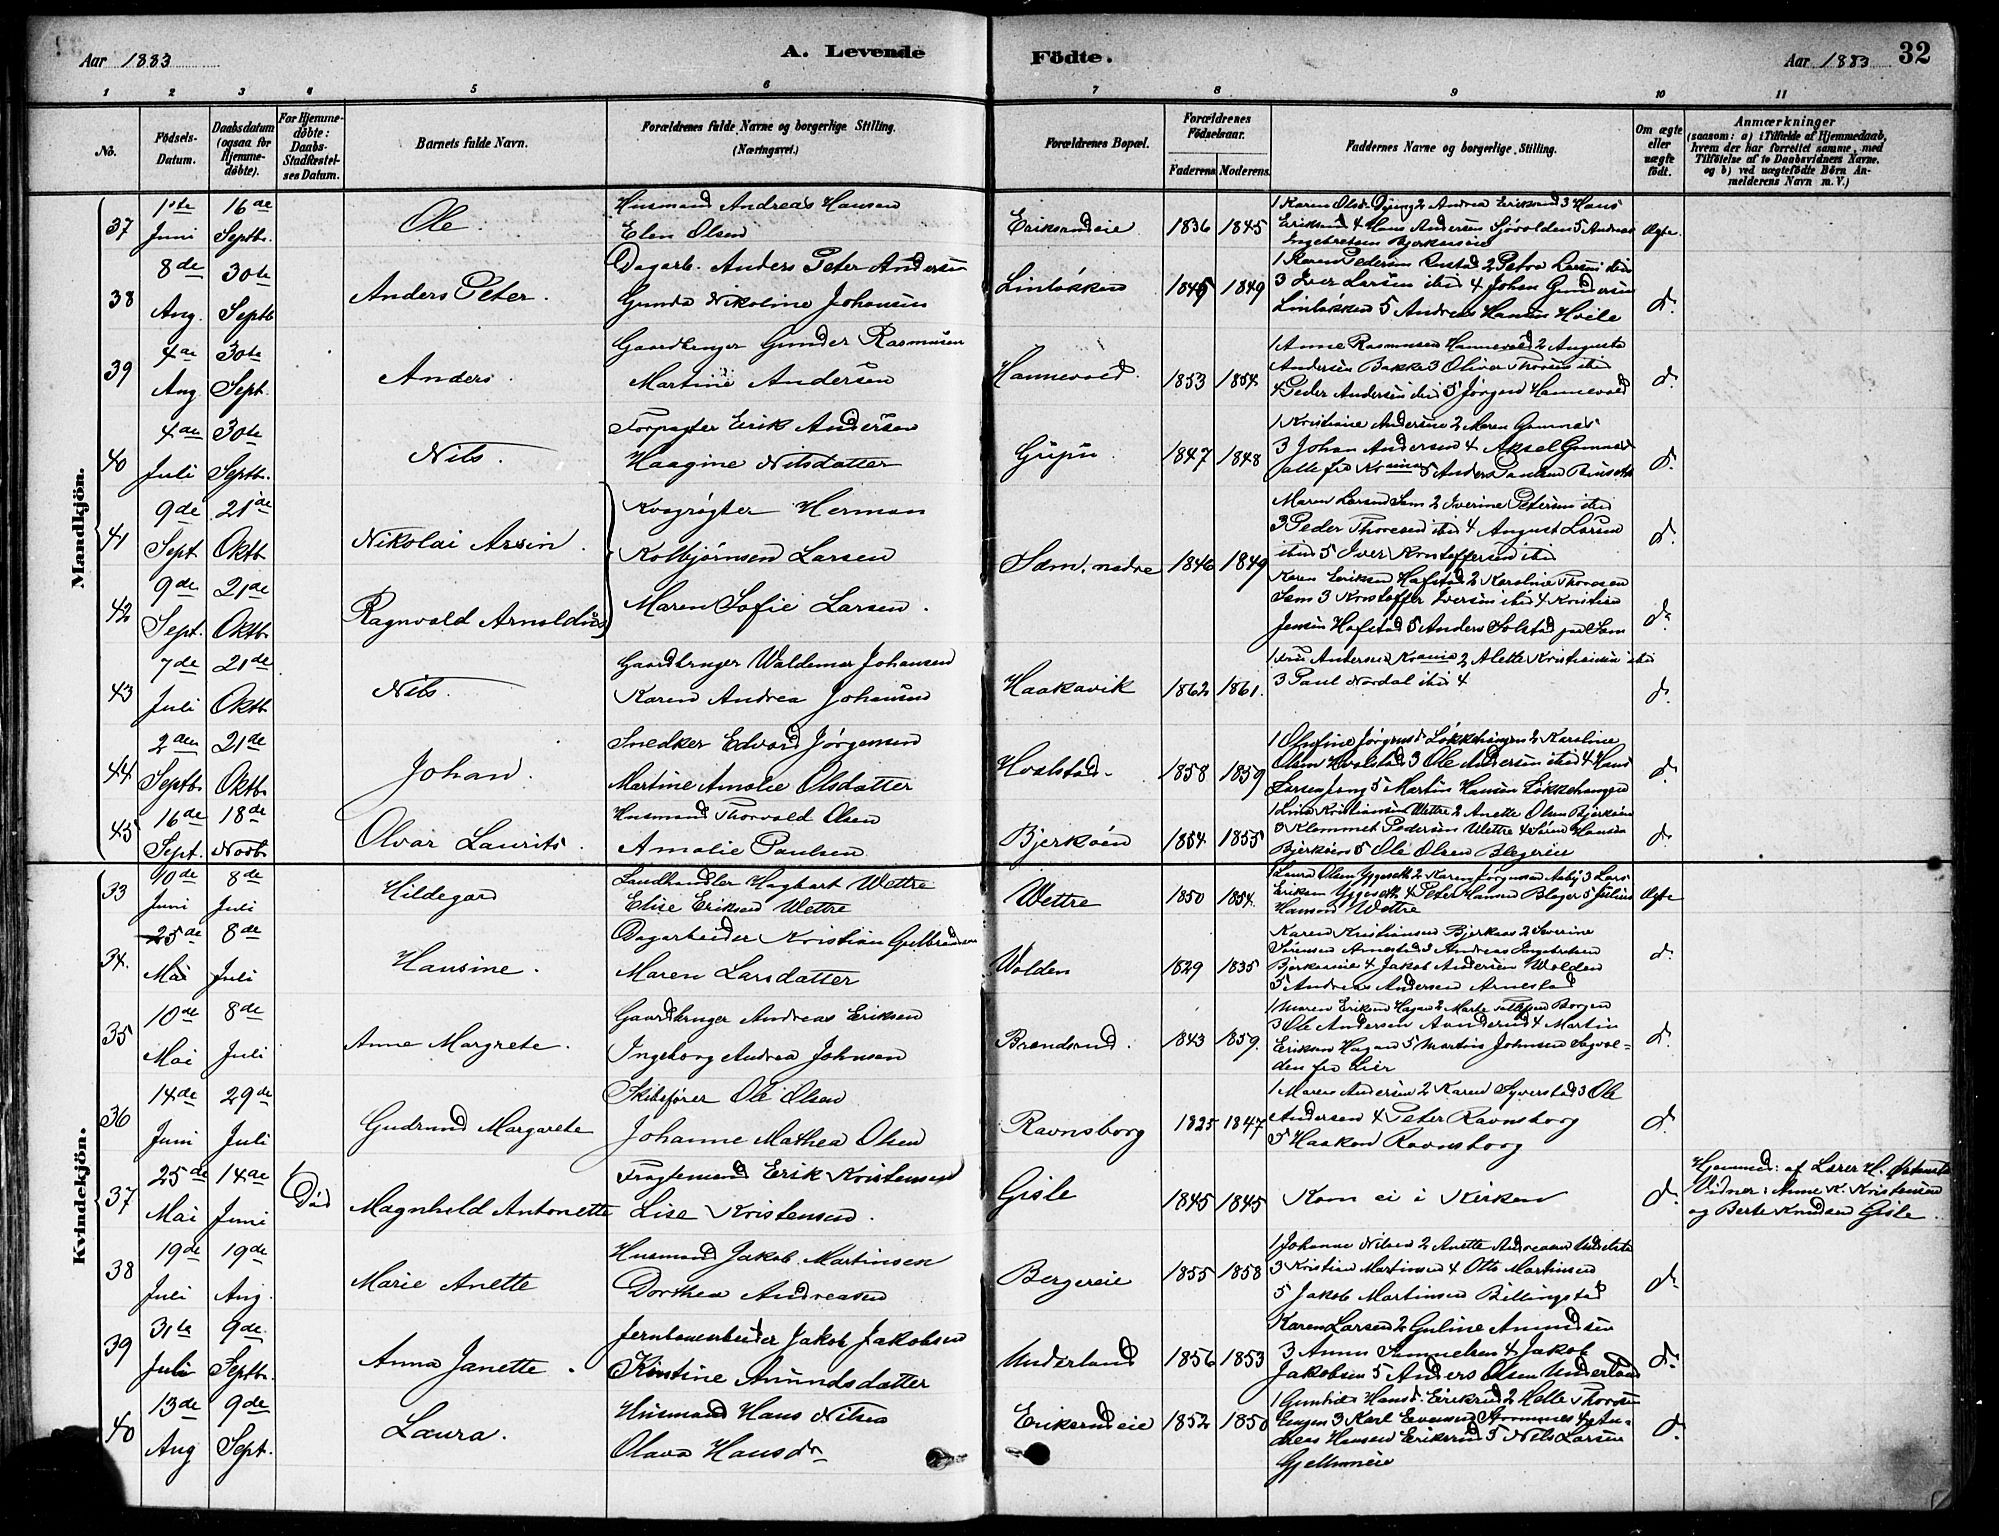 Aar 1883
A. Levende
Födte.
Aar 1883
32
1 2 3 4 5 6 7 8 9 10 11
No.
Födsels-Datum.
Daabsdatum (ogsaa for Hjemme-döbte).
For Hjemme-döbte: Daabs-Stadfæstel-ses Datum.
Barnets fulde Navn.
Forældrenes fulde Navne og borgerlige Stilling. (Næringsvei.)
Forældrenes Bopæl.
Forældrenes Födselsaar.
Faderens
Moderens.
Faddernes Navne og borgerlige Stilling.
Om ægte eller uægte födt.
Anmærkninger
(saasom: a) i Tilfælde af Hjemmedaab, hvem der har forrettet samme, med Tilföielse af to Daabsvidners Navne, og b) ved uægtefödte Börn An-melderens Navn m. V.)
Mandkjön.
37 1ste Juni 16de Septb. Ole. Husmand Andreas Hansen
Elen Olsen Eriksrudeie 1836 1845 Ægte.
38 8de Aug. 30te Septb Anders Peter. Dagarb. Anders Peter Andersen
Gunda Nikoline Johansen Linløkken 1849 3 Iver Larsen ibid 4 Johan Gundersen
Linløkken 5 Andreas Hansen Hvile d.
39 4de Aug. 30te Sept. Anders. Gaardbruger Gunder Rasmusen
Martine Andersen Hannevold. 1853 1854 1 Anne Rasmusen Hannevold 2 Augusta
Andersen Bakke 3 Oliver Thorsen ibid
4 Peder Andersen ibid 5 Jørgen Hannevold d.
40 4de Juli 30te Septb. Nils. Forpagter Erik Andersen
Haagine Nilsdatter 1847 1848 1 Kristiane Andersen 2 Maren
3 Johan Andersen 4 Aksel d.
41 9de Sept. 21de Oktb. Nikolai Arvin. Kvægrøgter Herman
Kolbjørnsen Larsen
Maren Sofie Larsen. Sem, nedre 1846 1849 Maren Larsen Sem 2 Iverine Petersen ibid
3 Peder Thoresen ibid 4 August Larsen
ibid 5 Iver Kristoffersen ibid d.
42 9de Sept. 21de Oktb. Ragnvald Arnoldus Karen Eriksen Hofstad 2 Karoline Thoresen
Sem 3 Kristoffer Iversen ibid 4 Kristian
Jensen Hofstad 5 Anders Solstad paa Sem d.
43 7de Juli 21de Oktb. Nils. Gaardbruger Waldemar Johansen
Karen Andrea Johansen Haakavik 1862 1861. Andersen 2 Alette Kristiansen ibid
3 Paul Nordal ibid 4 d.
44 2den Septb. 21de Oktb. Johan. Snedker Edvard Jørgensen
Martine Amalie Olsdatter Hvalstad. 1858 1859 1 Olufine Jørgensd. Løkkehaugen 2 Karoline
Olsen Hvalstad 3 Ole Andersen ibid 4 Hans
Larsen 5 Martin Hansen Løkkehaugen d.
45 16de Sept. 18de Novb. Olvar Laurits. Husmand Thorvald Olsen
Amalie Paulsen Bjerkøen 1854 1855 1 Lina Kristiansen Wettre 2 Anette Olsen Bjerkøen
3 Klemmet Pedersen Wettre 4 Søren Hansen
Bjerkøen 5 Ole Olsen d.
Kvindekjön.
33 10de Juni 8de Juli Hildegard Landhandler Hagbart Wettre
Elise Eriksen Wettre Wettre 1850 1854. 1 Laura Olsen Yggeseth 2 Karen Jørgensen 3 Lars
Eriksen Yggeseth 4 Peter Hansen 5 Julius
Hansen Wettre Ægte
34. 25de Mai 8de Juli Hansine. Dagarbeider Kristian Gulbrandsen
Maren Larsdatter Volden 1829 1835 Karen Kristiansen 2 Severine
Sørensen Arnestad 3 Andreas Ingebretsen
4 Jakob Andersen Wolden
5 Andreas Andersen Arnestad d.
35 10de Mai 8de Juli Anne Margrete. Gaardbruger Andreas Eriksen
Ingeborg Andrea Johnsen Brendsrud. 1843 1859. 1 Maren Eriksen Hagan 2 Marte Borgen
3 Ole Andersen 4 Martin
Eriksen Hagan 5 Martin Johnsen
fra Lier d.
36 14de Juni 29de Juli Gudrund Margarete Skibsfører Ole Olsen
Johanne Mathea Olsen Ravnsborg 1825 1847 1 Maren Andersen 2 Karen Syverstad 3 Ole
Andersen 4 Peter Ravnsborg
5 Haakon Ravnsborg d.
37 25de Mai 14de Juni Død Magnhild Antonette Fragtemand Erik Kristensen
Lise Kristensen. Gisle 1845 1845 Kom ei i Kirken d. Hjemmed: af Lærer H.
Vidner: Anne K. Kristensen
og Berte Knudsen Gisle
38 19de Juli 19de Aug. Marie Anette Husmand Jakob Martinsen
Dorthea Andreasen Bergereie 1855 1858 1 Johanne Nilsen 2 Anette Andreasen
3 Kristian Martinsen 4 Otto Martinsen
5 Jakob Martinsen Billingstad d.
39 31te Juli 9de Septb. Anna Janette. Jernbanearbeider Jakob Jakobsen
Kristine Amundsdatter Underland 1856 1853 Karen Larsen 2 Guline Amundsen
3 Anna 4 Jakob
Jakobsen 5 Anders Olsen Underland d.
40 13de Aug 9de Sept. Laura. Husmand Hans Nilsen
Olava Hansdr Eriksrudeie 1852 1850 1 Gunhild Hansd. Eriksrud 2 Helle Thorsen
Engen 3 Karl Evensen 4 An-
dreas Hansen Eriksrud 5 Nils Larsen
Gjellumeie d.